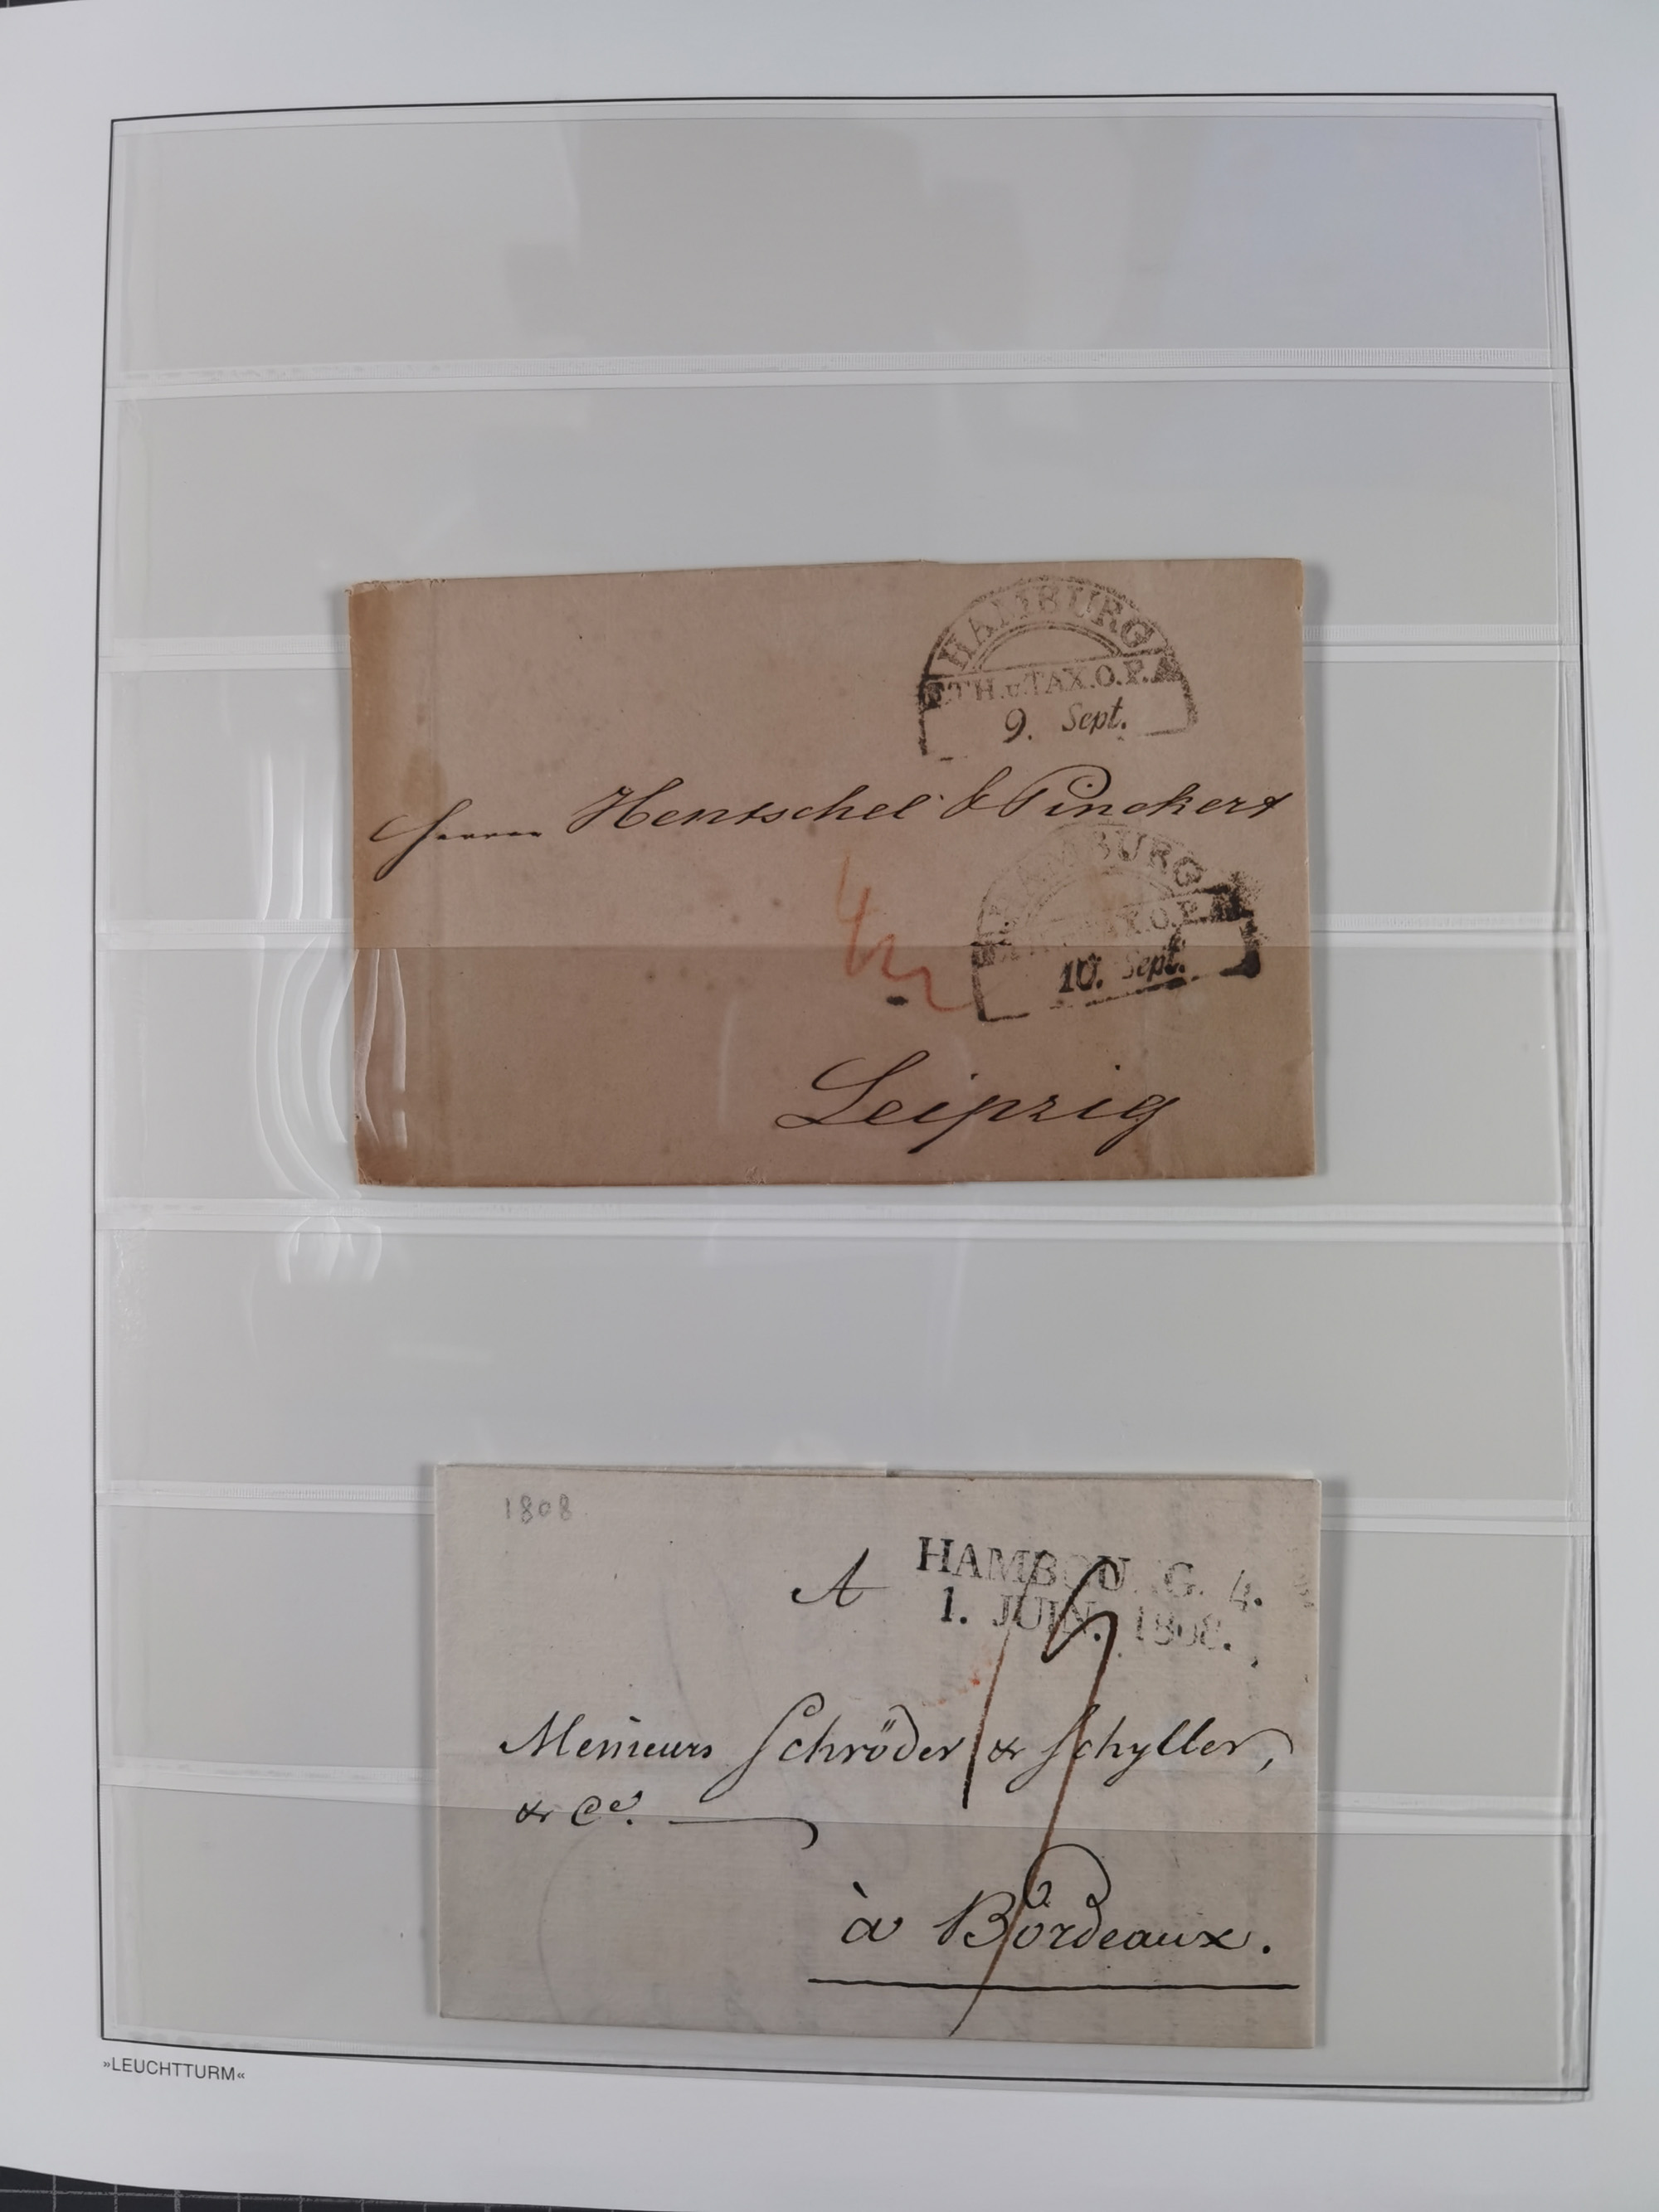 HAMBURG
TH.u.TAX.O.P.A
9. Sept.
Herren Hentschel & Pinckert
HAMBURG
10. Sept.
Leipzig
1808
A
HAMBOU G. 4.
1. JUIN. 1808.
Messieurs Schröder & Schyller,
& Co.
à Bordeaux.
»LEUCHTTURM«